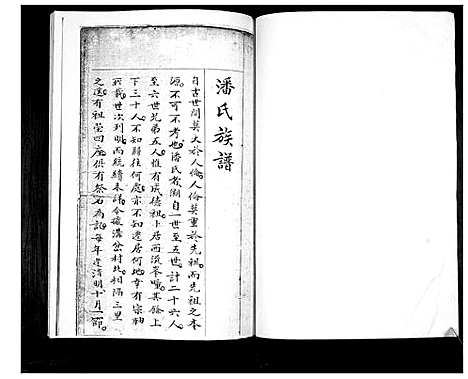 潘氏族譜
自古世間莫大於人倫人倫莫重於先祖而先祖之本
源不可不考也潘氏敖湖自一世至五世計二十六人
至六世兄弟五人惟有成德祖卜居西流峯嘴其餘上
下三十人不知歸往何處亦不知遷居何地幸有宗軸
所載世次列明而統續未詳今後溝岔村北相隔三里
之遙有祖塋四座俱有祭石為記每年逢清明十月一節